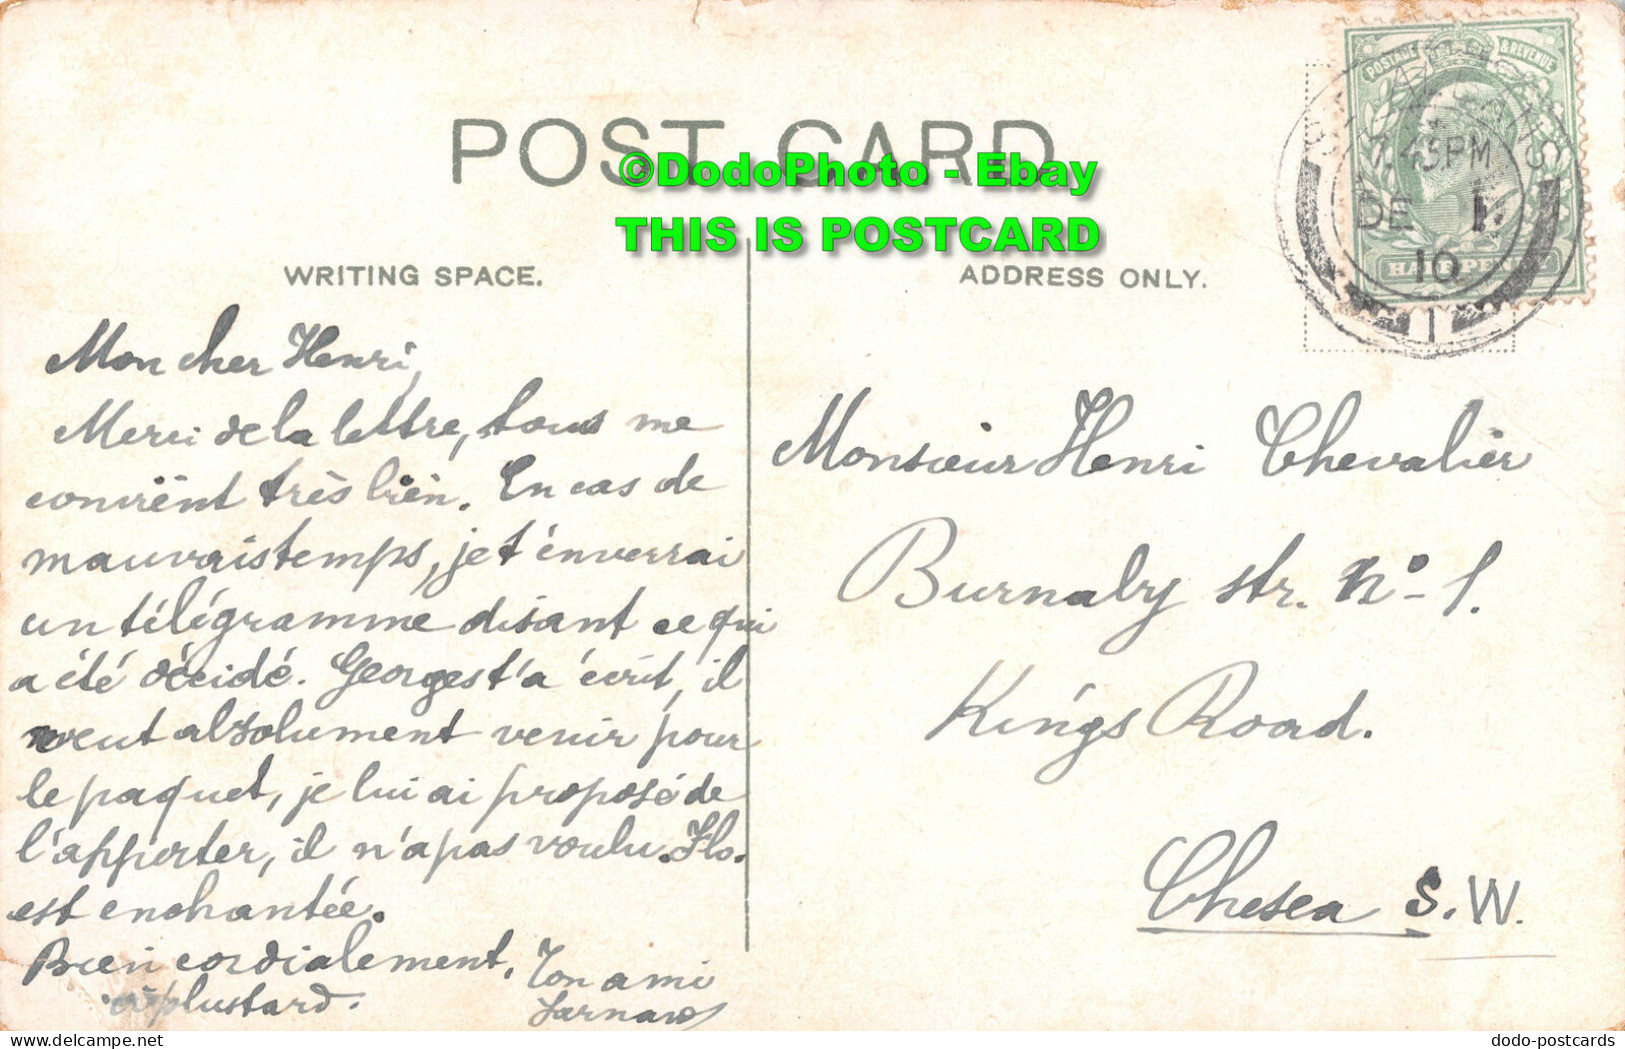 POST CARD
©DodoPhoto - Ebay
THIS IS POSTCARD
WRITING SPACE.
ADDRESS ONLY.
POSTAGE & REVENUE
7.45PM
DE 1
10
1
HALFPENNY
Mon cher Henri,
Merci de la lettre, tous me
convient très bien. En cas de
mauvais temps, je t'énverrai
un télégramme disant ce qui
a été décidé. Georges t'a écrit, il
veut absolument venir pour
le paquet, je lui ai proposé de
l'apporter, il n'a pas voulu. Flo.
est enchantée.
Bien cordialement,
à plustard.
Ton ami
Monsieur Henri Chevalier
Burnaby str. No - 1.
King's Road.
Chelsea S.W.
Hippostcard.com
dodo-postcards